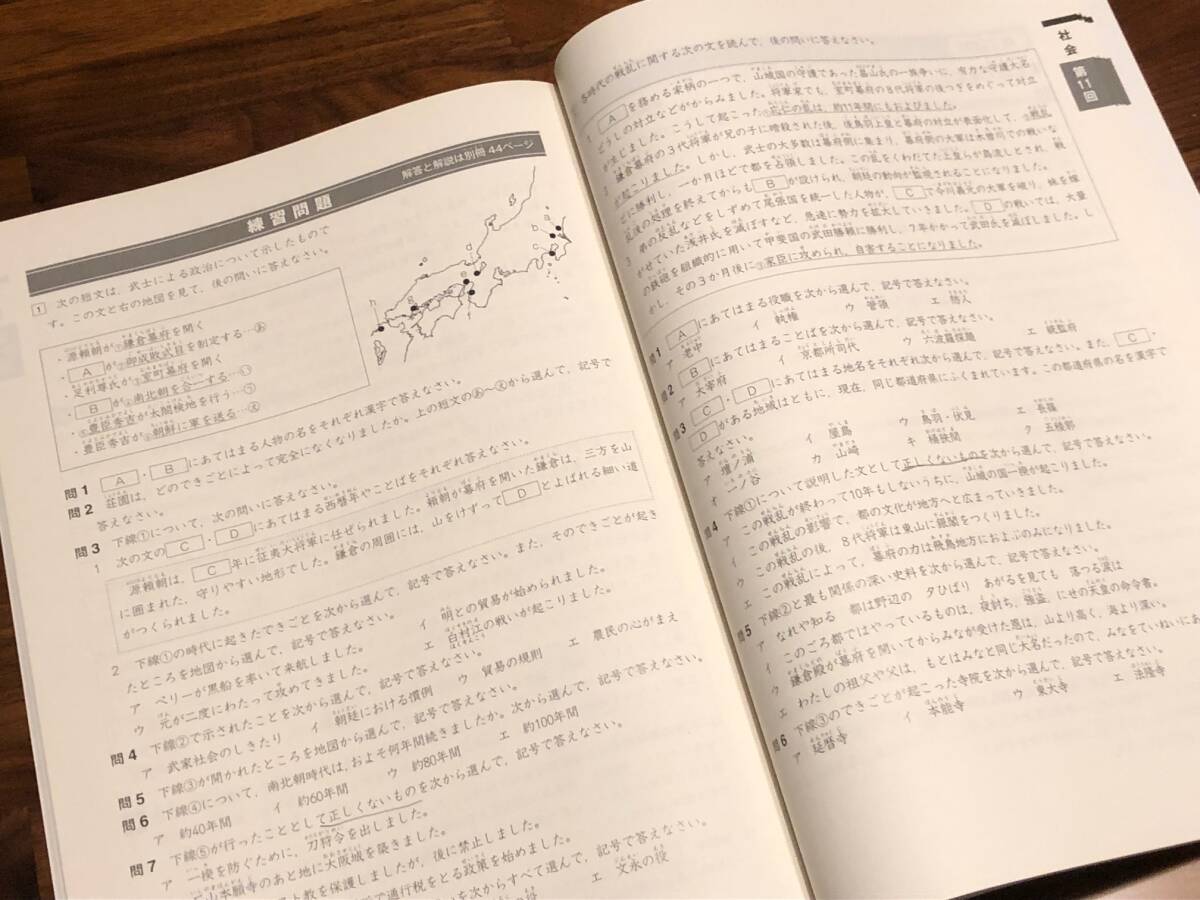 練習問題
解答と解説は別冊 44ページ
1 次の短文は、武士による政治について示したもので
す。この文と右の地図を見て、後の問いに答えなさい。
・源頼朝が①鎌倉幕府を開く
・Aが②御成敗式目を制定する…あ
・足利尊氏が③室町幕府を開く
・Bが④南北朝を合一する…い
・⑤豊臣秀吉が太閤検地を行う…う
・豊臣秀吉が⑥朝鮮に軍を送る…え
問1 A・Bにあてはまる人物の名をそれぞれ漢字で答えなさい。
問2 荘園は、どのできごとによって完全になくなりましたか。上の短文のあ〜えから選んで、記号で
答えなさい。
問3 下線①について、次の問いに答えなさい。
1 次の文のC・Dにあてはまる西暦年やことばをそれぞれ答えなさい。
源頼朝は、C年に征夷大将軍に任ぜられました。頼朝が幕府を開いた鎌倉は、三方を山
に囲まれた、守りやすい地形でした。鎌倉の周囲には、山をけずってDとよばれる細い道
がつくられました。
2 下線①の時代に起きたできごとを次から選んで、記号で答えなさい。また、そのできごとが起き
たところを地図から選んで、記号で答えなさい。
ア ペリーが黒船を率いて来航しました。 イ 明との貿易が始められました。
ウ 元が二度にわたって攻めてきました。 エ 白村江の戦いが起こりました。
問4 下線②で示されたことを次から選んで、記号で答えなさい。
ア 武家社会のしきたり イ 朝廷における慣例 ウ 貿易の規則 エ 農民の心がまえ
問5 下線③が開かれたところを地図から選んで、記号で答えなさい。
問6 下線④について、南北朝時代は、およそ何年間続きましたか。次から選んで、記号で答えなさい。
ア 約40年間 イ 約60年間 ウ 約80年間 エ 約100年間
問7 下線⑤が行ったこととして正しくないものを次から選んで、記号で答えなさい。
ア 一揆を防ぐために、刀狩令を出しました。
石山本願寺のあと地に大阪城を築きました。
教を保護しましたが、後に禁止しました。
で通行税をとる政策を始めました。
を次からすべて選んで、記号で答えなさい。
エ 文永の役
社会
第11回
各時代の戦乱に関する次の文を読んで、後の問いに答えなさい。
1 Aを務める家柄の一つで、山城国の守護であった畠山氏の一族争いに、有力な守護大名
どうしの対立などがからみました。将軍家でも、室町幕府の8代将軍の後つぎをめぐって対立
が生じました。こうして起こった①応仁の乱は、約11年間にもおよびました。
2 鎌倉幕府の3代将軍が兄の子に暗殺された後、後鳥羽上皇と幕府の対立が表面化して、②戦乱
が起こりました。しかし、武士の大多数は幕府側に集まり、幕府側の大軍は木曽川での戦いな
どに勝利し、一か月ほどで都を占領しました。この乱をくわだてた上皇らが島流しとされ、戦
乱後の処理を終えてからもBが設けられ、朝廷の動向が監視されることになりました。
3 弟の反乱などをしずめて尾張国を統一した人物が、Cで今川義元の大軍を破り、妹を嫁
がせていた浅井氏を滅ぼすなど、急速に勢力を拡大していきました。Dの戦いでは、大量
の鉄砲を組織的に用いて甲斐国の武田勝頼に勝利し、7年かかって武田氏を滅ぼしました。し
かし、その3か月後に③家臣に攻められ、自害することになりました。
問1 Aにあてはまる役職を次から選んで、記号で答えなさい。
ア 老中 イ 執権 ウ 管領 エ 防人
問2 Bにあてはまることばを次から選んで、記号で答えなさい。
ア 大宰府 イ 京都所司代 ウ 六波羅探題 エ 統監府
問3 C・Dにあてはまる地名をそれぞれ次から選んで、記号で答えなさい。また、C・
Dがある地域はともに、現在、同じ都道府県にふくまれています。この都道府県の名を漢字で
答えなさい。
ア 壇ノ浦 イ 屋島 ウ 鳥羽・伏見 エ 長篠
オ 一ノ谷 カ 山崎 キ 桶狭間 ク 五稜郭
問4 下線①について説明した文として正しくないものを次から選んで、記号で答えなさい。
ア この戦乱が終わって10年もしないうちに、山城の国一揆が起こりました。
イ この戦乱の影響で、都の文化が地方へと広まっていきました。
ウ この戦乱の後、8代将軍は東山に銀閣をつくりました。
エ この戦乱によって、幕府の力は飛鳥地方におよぶのみになりました。
問5 下線②と最も関係の深い史料を次から選んで、記号で答えなさい。
ア なれや知る 都は野辺の 夕ひばり あがるを見ても 落つる涙は
イ このごろ都ではやっているものは、夜討ち、強盗、にせの天皇の命令書。
ウ 鎌倉殿が幕府を開いてからみなが受けた恩は、山より高く、海より深い。
エ わたしの祖父や父は、もとはみなと同じ大名だったので、みなをていねいにあ
問6 下線③のできごとが起こった寺院を次から選んで、記号で答えなさい。
ア 延暦寺 イ 本能寺 ウ 東大寺 エ 法隆寺